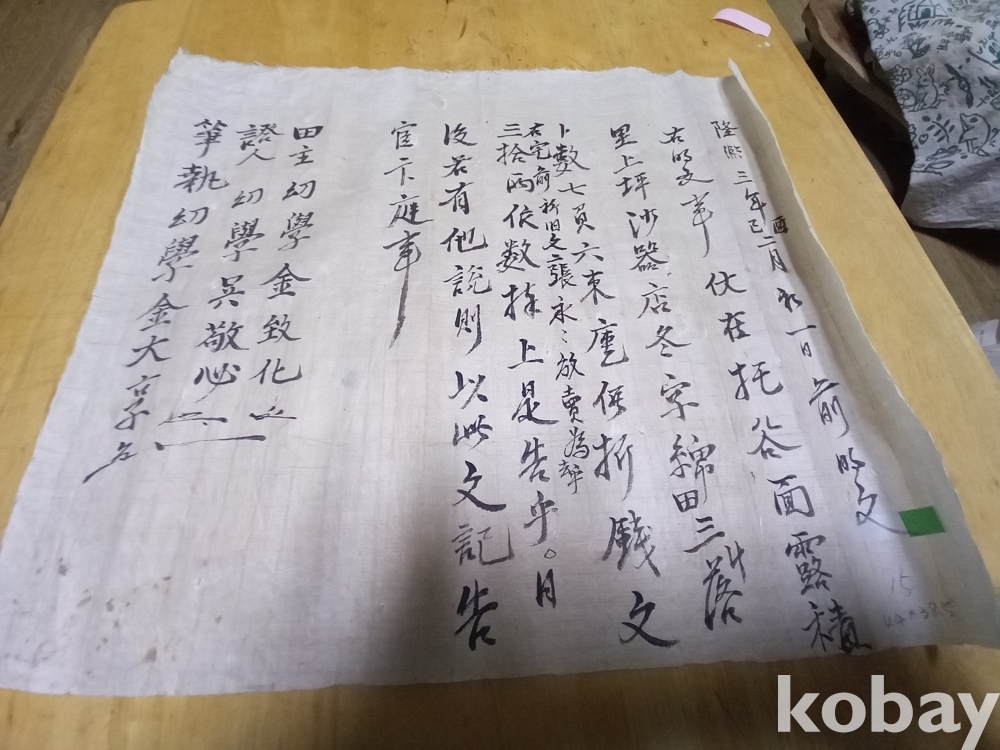 隆熙三年己酉二月初一日 前明文
右明文事 伏在托谷面露積
里上坪沙器店冬字綿田三斗落
卜数七負六束庫價折錢文
三拾兩依数捧上是告乎。月
右宅前 旧文二張永〻放賣為乎
後若有他説則以此文記告
官卞庭事
田主幼學金致化
證人幼學吳敬必
筆執幼學金大亨
15
kobay